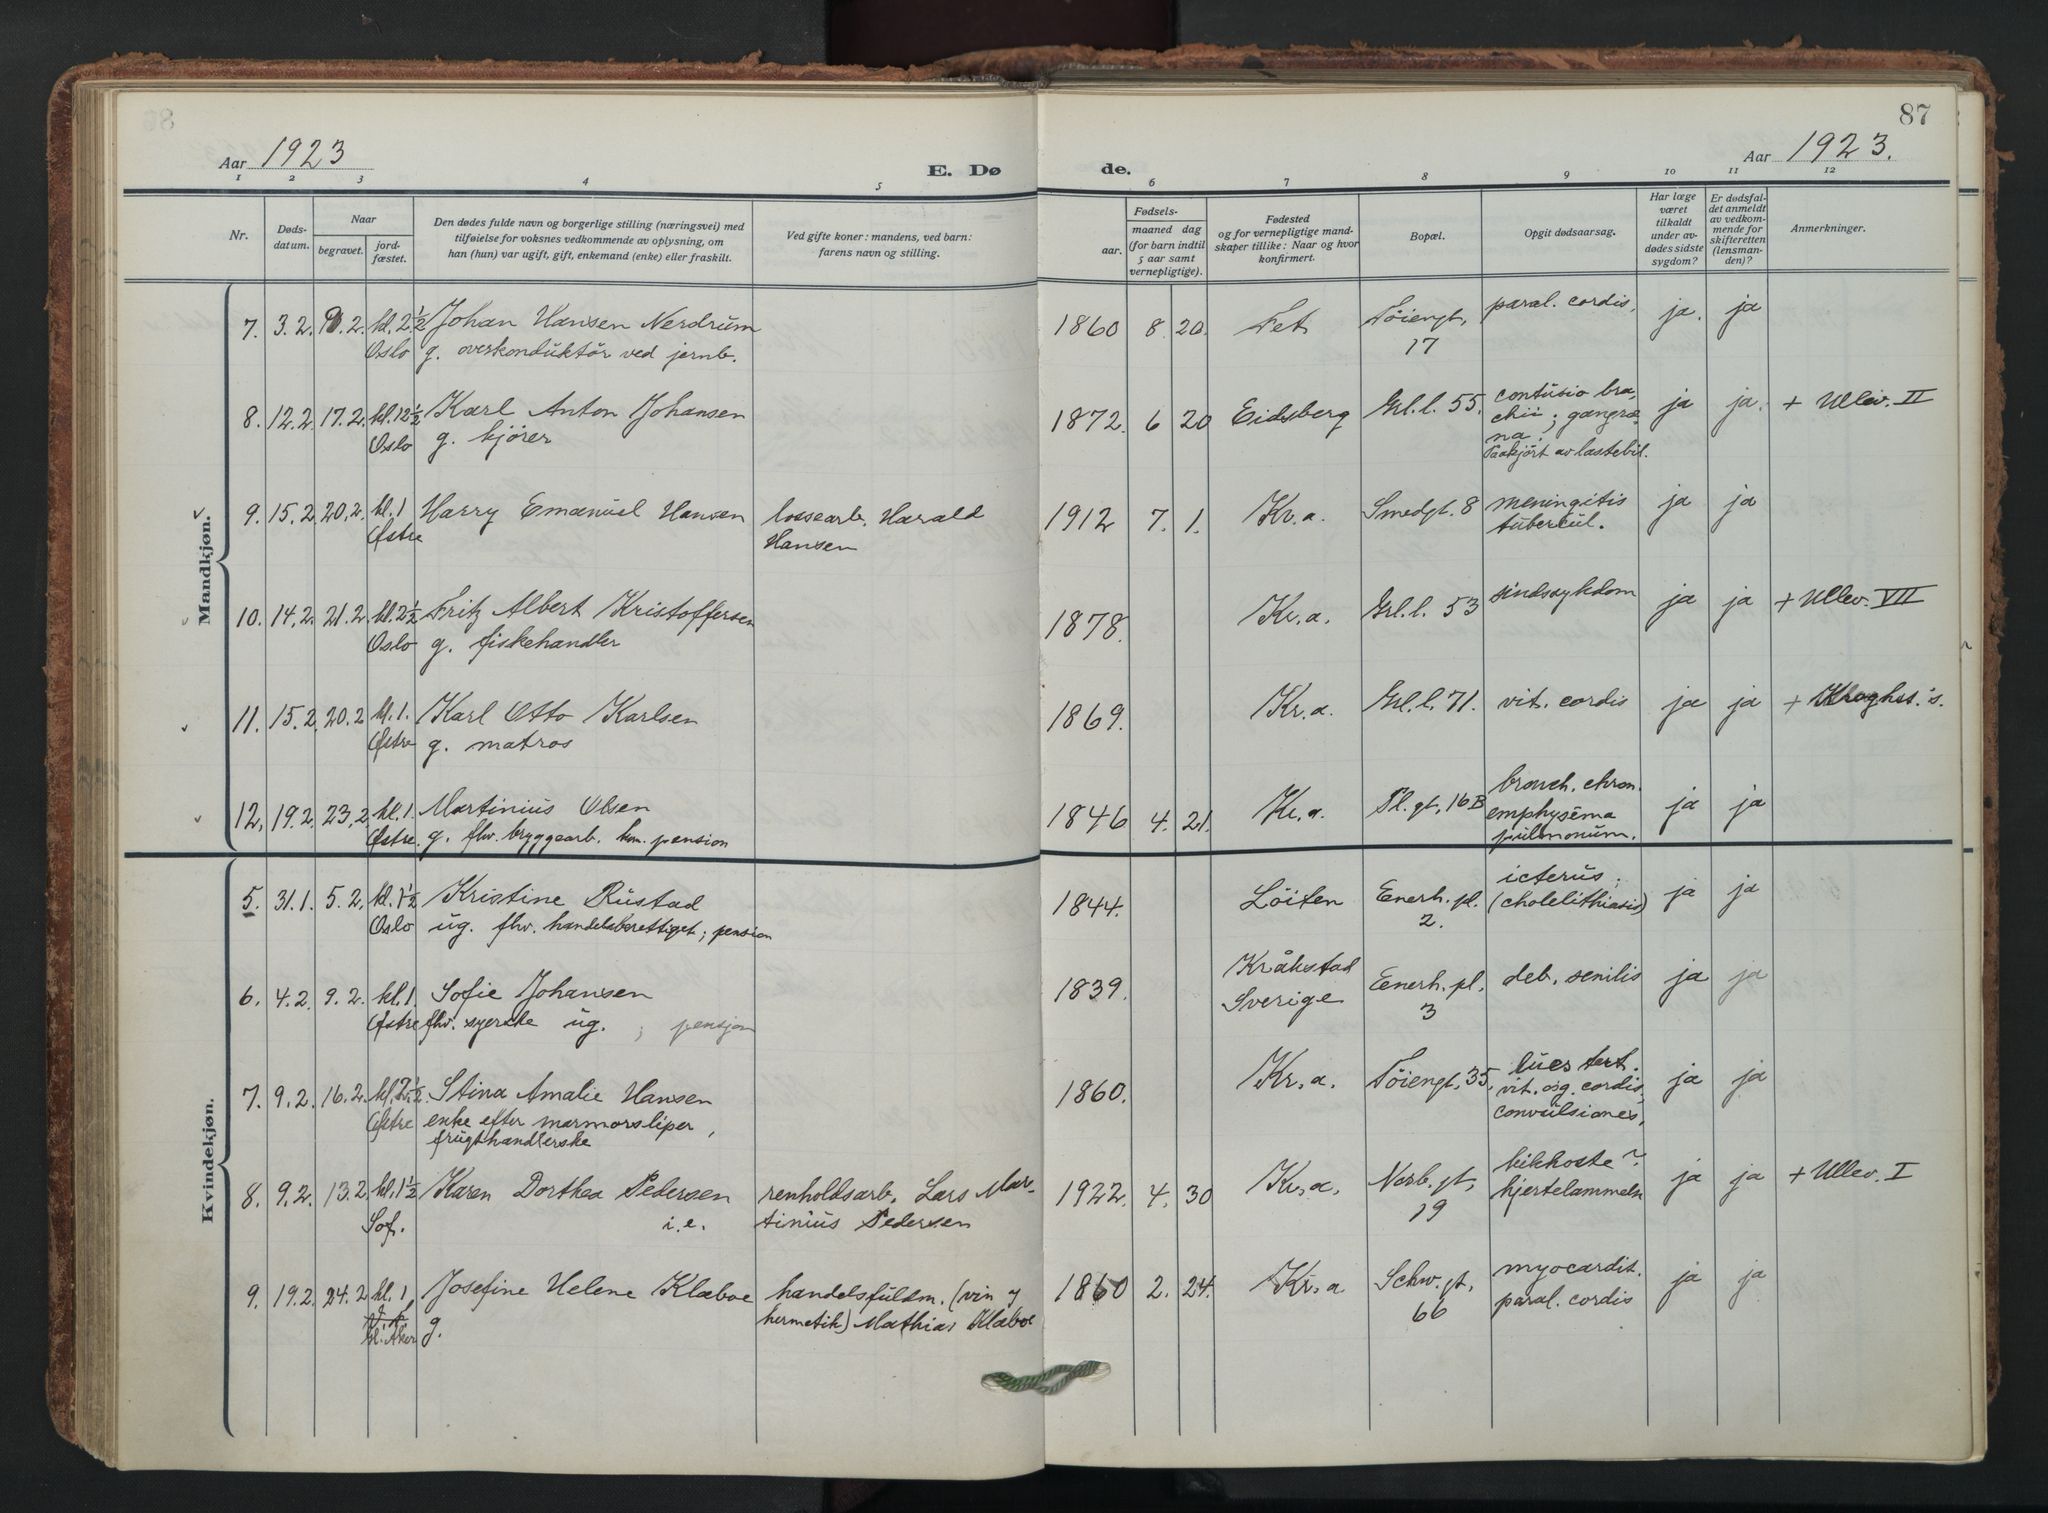 87
Aar 1923
E. Dø
de.
Aar 1923.
1 2 3 4 5 6 7 8 9 10 11 12
Nr.
Døds-
datum.
Naar
begravet.
jord-
fæstet.
Den dødes fulde navn og borgerlige stilling (næringsvei) med
tilføielse for voksnes vedkommende av oplysning, om
han (hun) var ugift, gift, enkemand (enke) eller fraskilt.
Ved gifte koner: mandens, ved barn:
farens navn og stilling.
Fødsels-
aar.
maaned dag
(for barn indtil
5 aar samt
vernepligtige).
Fødested
og for vernepligtige mand-
skaper tillike: Naar og hvor
konfirmert.
Bopæl.
Opgit dødsaarsag.
Har læge
været
tilkaldt
under av-
dødes sidste
sygdom?
Er dødsfal-
det anmeldt
av vedkom-
mende for
skifteretten
(lensman-
den)?
Anmerkninger.
Mandkjøn.
7. 3.2. 9.2. kl. 2½ Johan Hansen Nerdrum 1860 8. 20. Fet Tøiengt. paral. cordis, ja. ja
Oslo g. overkonduktør ved jernb. 17
8. 12.2. 17.2. kl. 12½ Karl Anton Johansen 1872. 6 20 Eidsberg Grl.l. 55. contusio bra- ja ja. + Ullev. II
Oslo g. kjører chii; gangræ-
na.
Paakjørt av lastebil.
9. 15.2. 20.2. kl. 1 Harry Emanuel Hansen lossearb. Harald 1912 7. 1. Kr.a. Smedgt. 8 meningitis ja ja
Østre Hansen tubercul.
10. 14.2. 21.2. kl. 2½ Fritz Albert Kristoffersen 1878. Kr.a. Grl.l. 53 sindssykdom ja ja + Ullev. VII
Oslo g. fiskehandler
11. 15.2. 20.2 kl. 1. Karl Otto Karlsen 1869. Kr.a. Grl.l. 71. vit. cordis ja ja + Kroghst.'s.
Østre g. matros
12. 19.2. 23.2. kl. 1. Martinius Olsen 1846 4. 21. Kr.a. Pl.gt. 16B bronch. chron. ja ja
Østre. g. fhv. bryggearb. kom. pension emphysema
pulmonum.
Kvindekjøn.
5. 31.1. 5.2. kl. 1½ Kristine Rustad 1844. Løiten Enerh.pl. icterus; ja ja
Oslo ug. fhv. handelsberettiget; pension 2. (cholelithiasis)
6. 4.2. 9.2. kl. 1. Sofie Johansen 1839. Kråkstad Enerh.pl. deb. senilis ja ja
Østre fhv. syerske ug. ; pensjon Sverige 3
7. 9.2. 16.2. kl. 2½ Stina Amalie Hansen 1860. Kr.a. Tøiengt. 35. lues tert. ja ja
Østre enke efter marmorsliper, vit. org. cordis,
frugthandlerske convulsiones,
8. 9.2. 13.2. kl. 1½ Karen Dorthea Pedersen renholdsarb. Lars Mar- 1922. 4. 30 Kr.a. Norb.gt. kikhoste? ja ja + Ullev. I
Sof. i.e. tinius Pedersen 19 hjertelammelse
9. 19.2. 24.2 kl. 1 Josefine Helene Klæboe handelsfuldm. (vin og 1860 2. 24. Kr.a Schw.gt. myocardit. ja ja
kl. Aker g. hermetik) Mathias Klæboe 66 paral. cordis